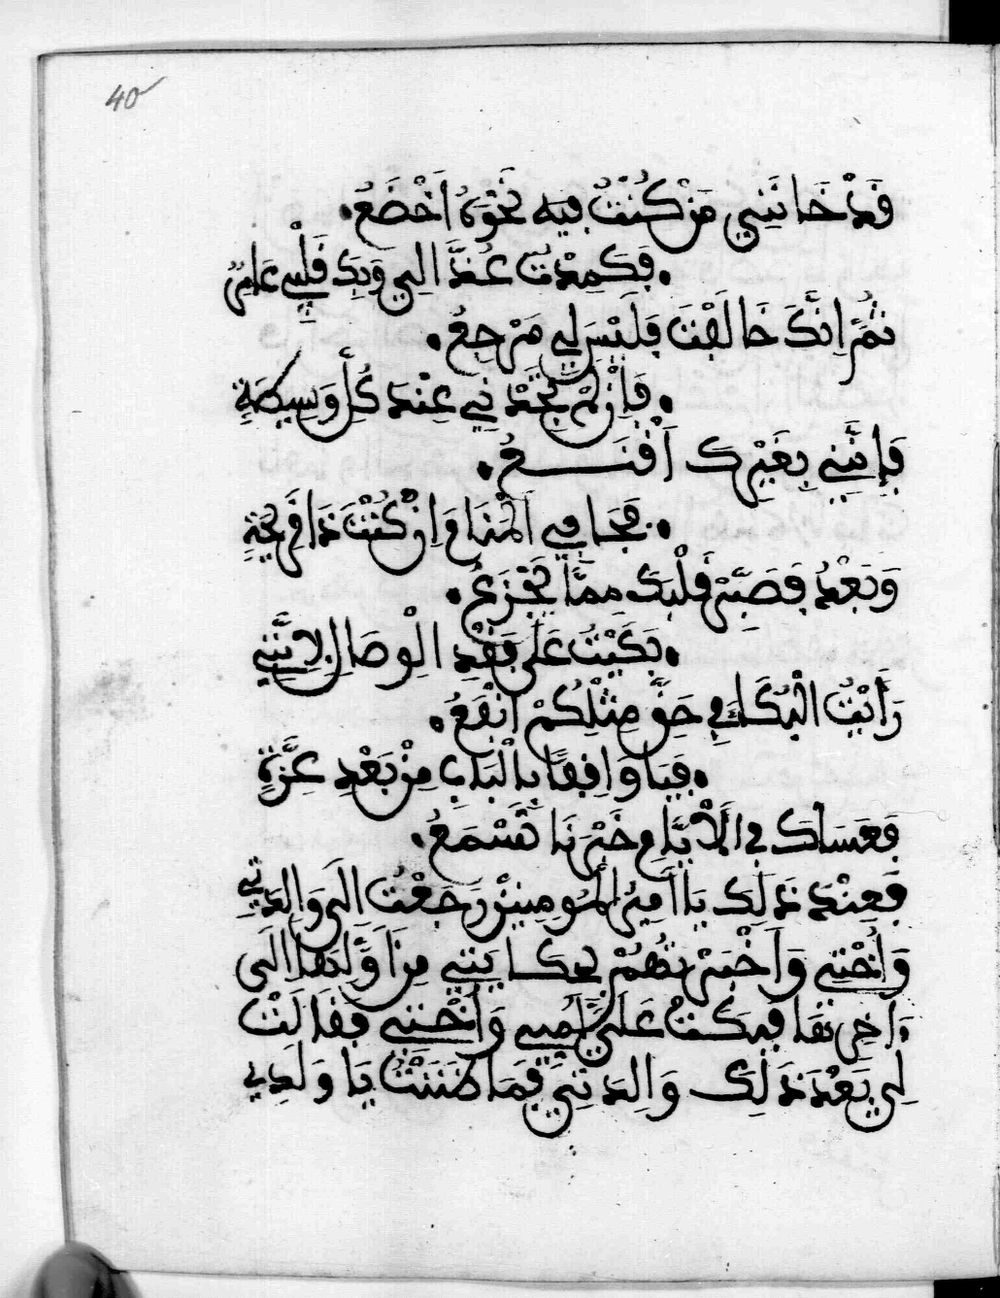 40
فَدْ خَانَنِي مَنْ كُنْتُ فِيهِ نَخْوَهُ أَخْضَعُ.
.فَكَمِدْتُ عُذَّالِي وَبِكَ فَلْبِي عَامِرٌ
ثُمَّ إِنَّكَ خَالَفْتَ فَلَيْسَ لِي مَرْجِعُ.
.فَإِنْ لَمْ تَجِدْنِي عِنْدَ كُلِّ وَسِيطَةٍ
فَإِنَّنِي بِغَيْرِكَ أَفْنَعُ.
.فَجَا فِي الْمَنَامِ إِنْ كُنْتَ ذَا فَرِيحَةٍ
وَبَعْدُ فَصَبِّرْ فَلْبَكَ مِمَّا يَجْزَعُ.
.بَكَيْتُ عَلَى فَفْدِ الْوِصَالِ لِأَنَّنِي
رَأَيْتُ الْبُكَاءَ فِي حَقِّ مِثْلِكُمْ أَنْفَعُ.
.فَيَا وَافِفًا بِالْبَابِ مِنْ بَعْدِ عِزَّةٍ
فَعَسَاكَ فِي الْأَيَّامِ خَبَرْنَا تَسْمَعُ.
فَعِنْدَ ذَلِكَ يَا أَمِيرَ الْمُومِنِينَ رَجَعْتُ إِلَى وَالِدَتِي
وَأُخْتِي وَأَخْبَرْتُهُمْ بِحِكَايَتِي مِنْ أَوَّلِهَا إِلَى
ءَاخِرِهَا فَبَكَتْ عَلَيَّ أُمِّي وَأُخْتِي فَفَالَتْ
لِي بَعْدَ ذَلِكَ وَالِدَتِي فَمَا ظَنَنْتَ يَا وَلَدِي